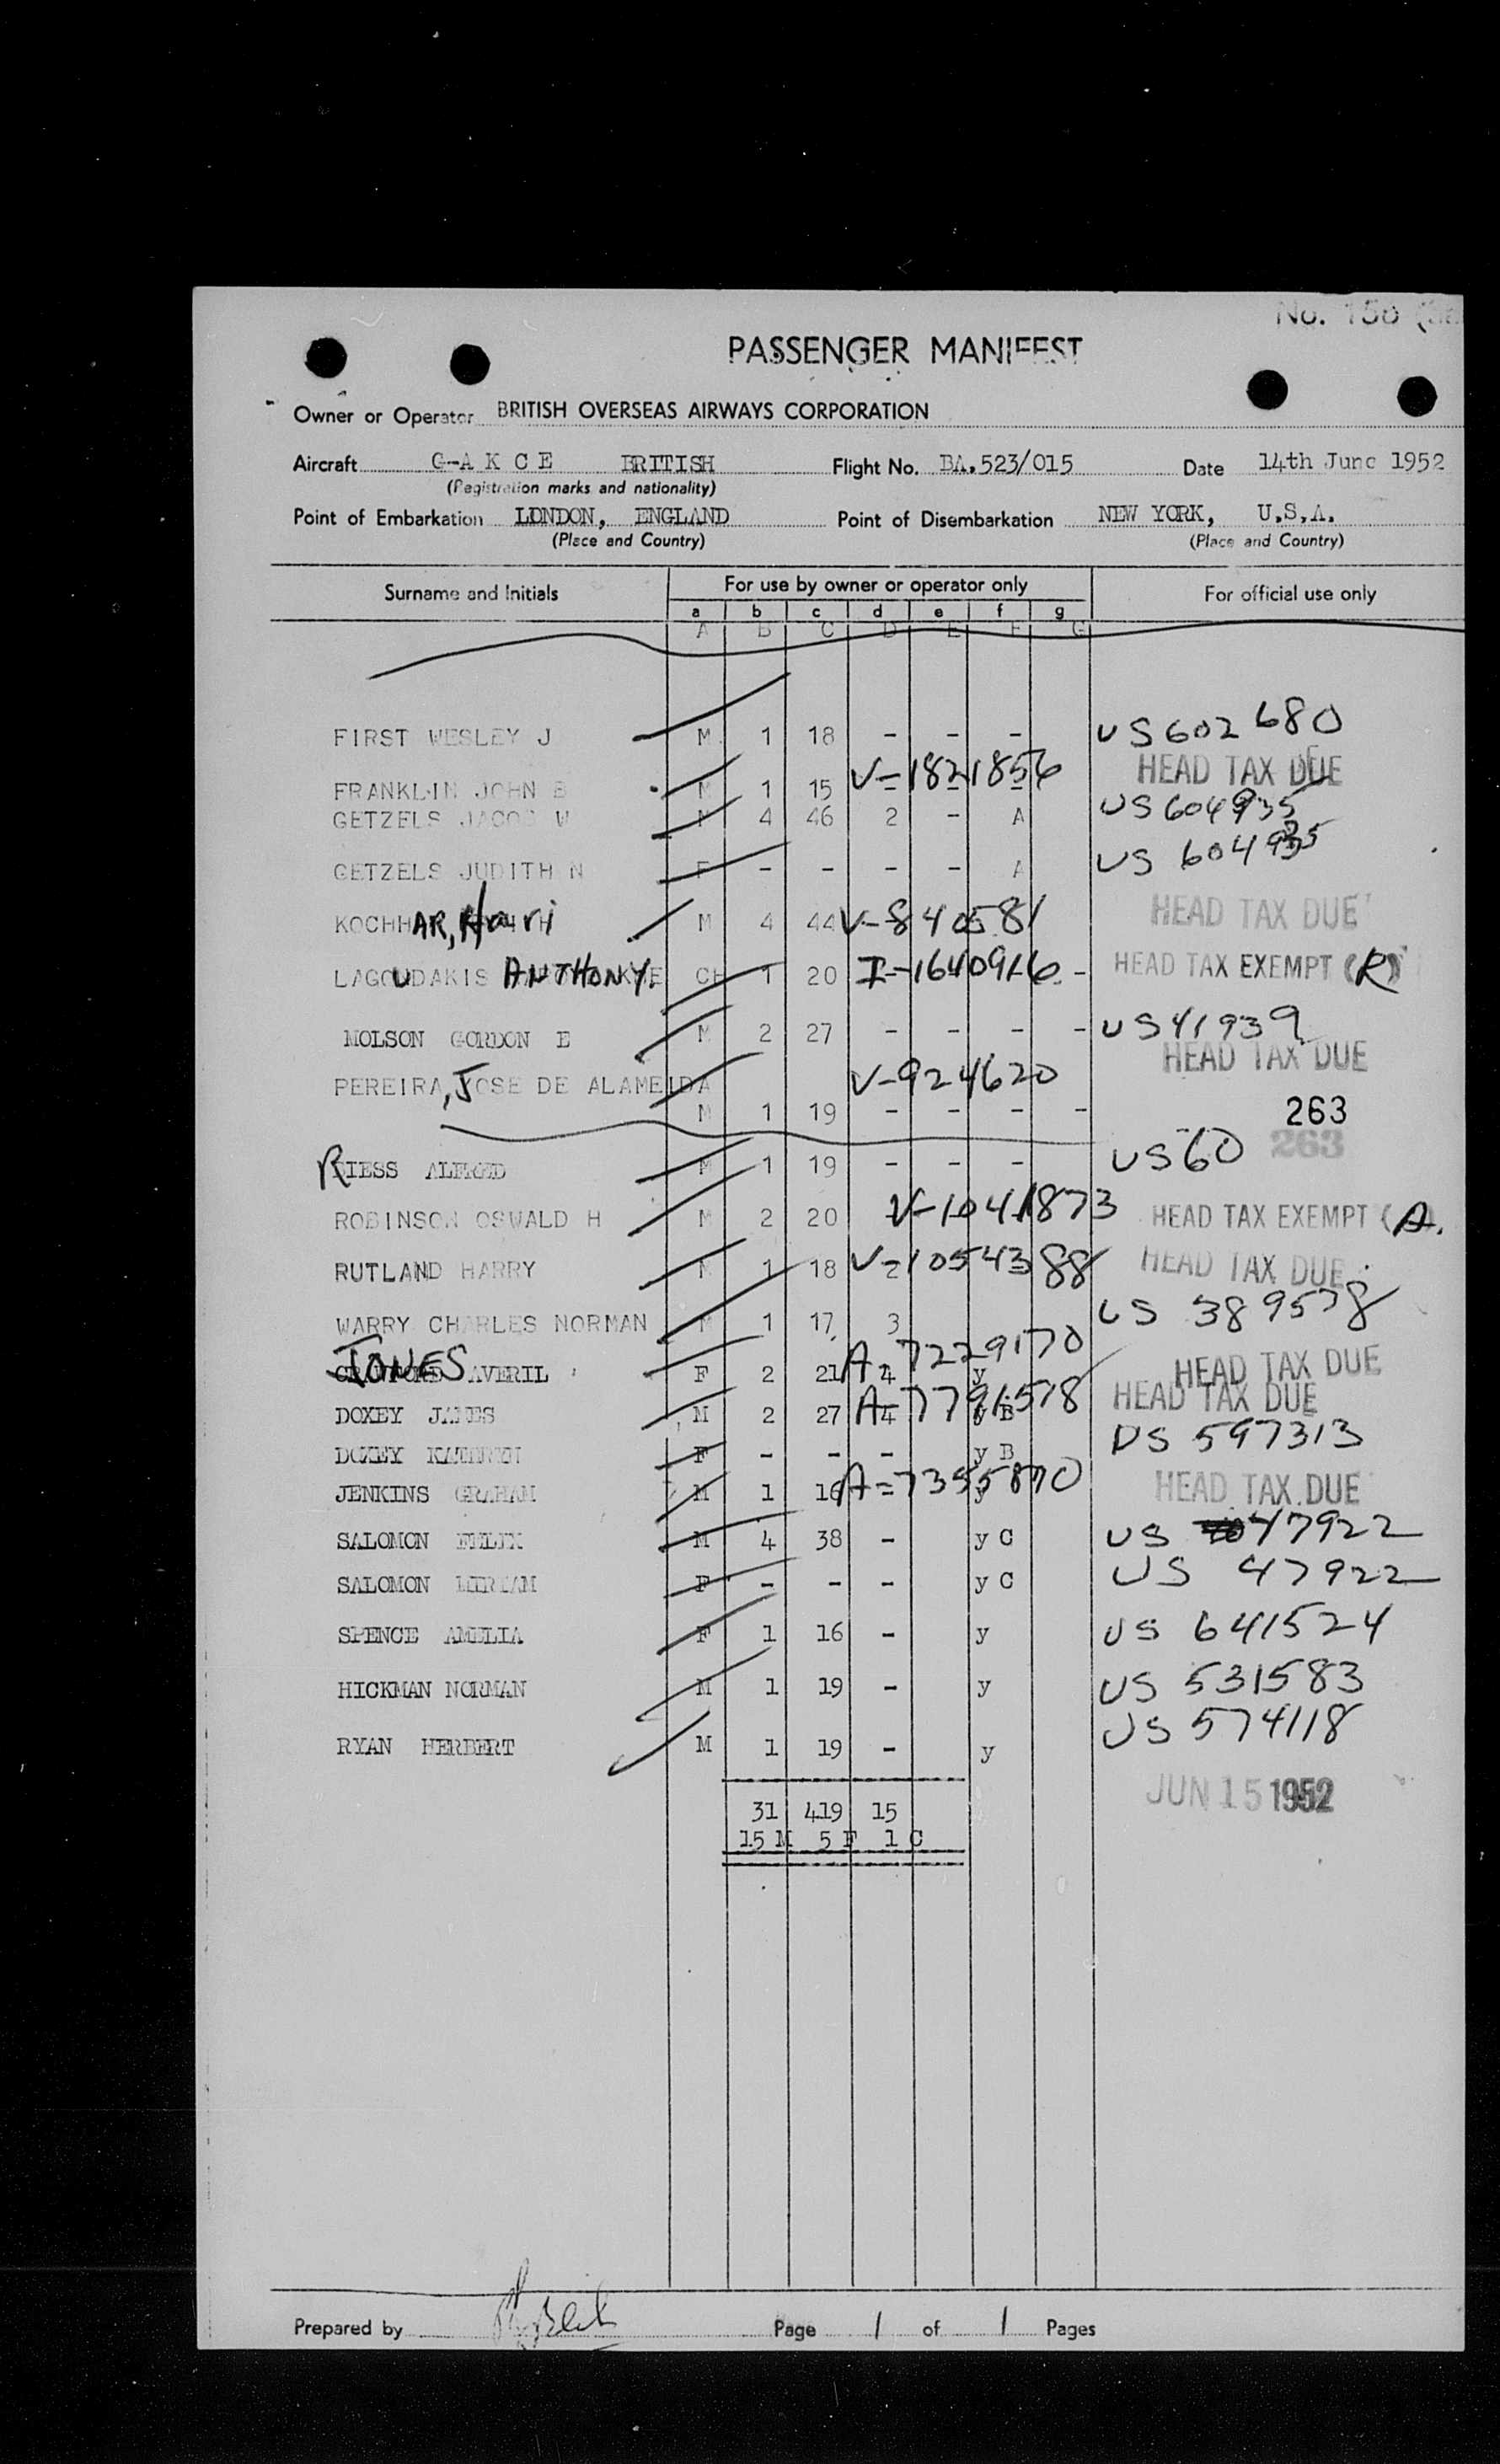 No. 158
PASSENGER MANIFEST
Owner or Operator BRITISH OVERSEAS AIRWAYS CORPORATION
Aircraft G-A K C E BRITISH Flight No. BA.523/015 Date 14th June 1952
(Registration marks and nationality)
Point of Embarkation LONDON, ENGLAND Point of Disembarkation NEW YORK, U.S.A.
(Place and Country) (Place and Country)
Surname and Initials For use by owner or operator only For official use only
a b c d e f g
A B C D E F G
FIRST WESLEY J M 1 18 - - - US602680
V-1821856 HEAD TAX DUE
FRANKLIN JOHN B M 1 15 - - -
GETZELS JACOB W M 4 46 2 - A US604935
GETZELS JUDITH N F - - - - A US 604935
KOCHHAR, Hari M 4 44 V-840581 HEAD TAX DUE
LAGOUDAKIS ANTHONY. CH 1 20 I-1640916 - HEAD TAX EXEMPT (R)
MOLSON GORDON E M 2 27 - - - - US41939
HEAD TAX DUE
PEREIRA, JOSE DE ALAMEIDA V-924620
M 1 19 - - - - 263
RIESS ALFRED M 1 19 - - - US60 263
ROBINSON OSWALD H M 2 20 V-1041873 HEAD TAX EXEMPT (A.
RUTLAND HARRY M 1 18 2 V-1054388 HEAD TAX DUE
WARRY CHARLES NORMAN M 1 17 3 US 389578
JONES AVERIL F 2 21 4 A-7229170 y HEAD TAX DUE
DOXEY JAMES M 2 27 4 A-7791578 y B HEAD TAX DUE
DOXEY KATHRYN F - - - y B US 597313
JENKINS GRAHAM M 1 16 - A-7355870 y HEAD TAX DUE
SALOMON FELIX M 4 38 - y C US 47922
SALOMON MIRIAM F - - - y C US 47922
SPENCE AMELIA F 1 16 - y US 641524
HICKMAN NORMAN M 1 19 - y US 531583
RYAN HERBERT M 1 19 - y US 574118
JUN 15 1952
31 419 15
15 M 5 F 1 C
Prepared by Page 1 of 1 Pages